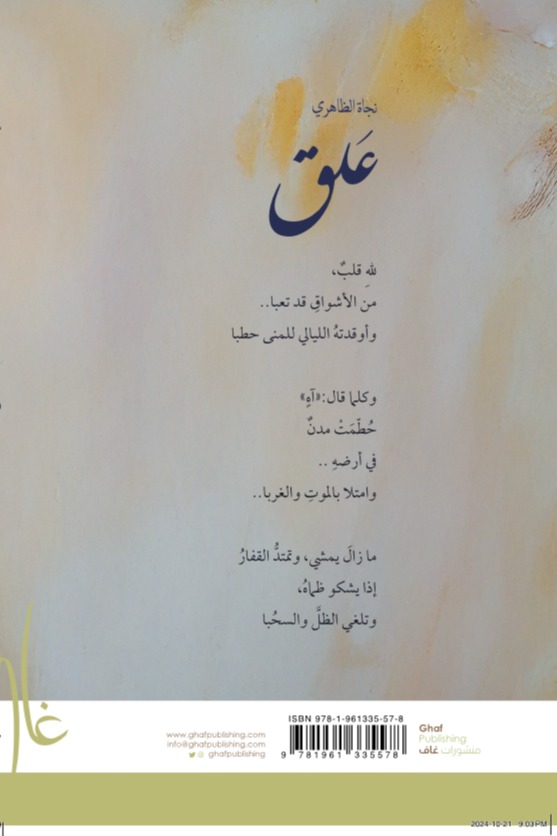 نجاة الظاهري
عَلق
للهِ قلبٌ،
من الأشواقِ قد تعبا..
وأوقدتهُ الليالي للمنى حطبا
وكلما قال: «آهٍ»
حُطّمَتْ مدنٌ
في أرضهِ ..
وامتلا بالموتِ والغربا..
ما زالَ يمشي، وتمتدُّ القفارُ
إذا يشكو ظماهُ،
وتلغي الظلَّ والسحُبا
غاف
ISBN 978-1-961335-57-8
9 781961 335578
www.ghafpublishing.com
info@ghafpublishing.com
ghafpublishing
Ghaf
Publishing
منشورات غاف
2024-10-21 9:03 PM